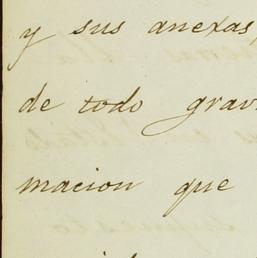 y sus anexas,
de todo grav
macion que